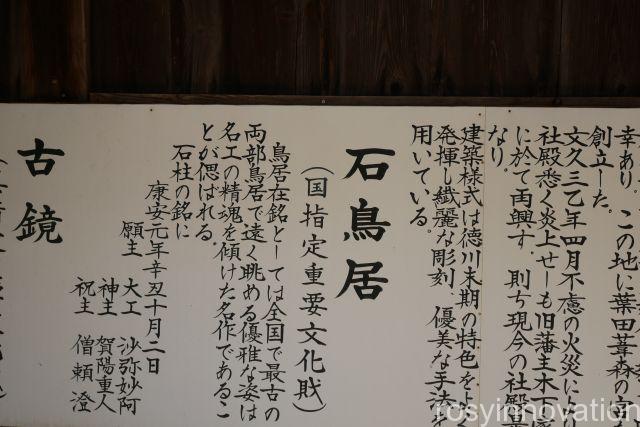 幸あり、この地に葉田葦森の宮
創立した。
文久三乙年四月不慮の火災により
社殿悉く炎上せしも旧藩主木下
に於て再興す。則ち現今の社殿
なり。
建築様式は徳川末期の特色をよ
発揮し繊麗な彫刻 優美な手法を
用いている。
石鳥居
(国指定重要文化財)
鳥居在銘としては全国で最古の
両部鳥居で遠く眺める優雅な姿は
名工の精魂を傾けた名作であるこ
とが偲ばれる。
石柱の銘に
康安元年辛丑十月二日
願主 大工 沙弥妙阿
神主 賀陽重人
祝主 僧頼澄
古鏡
rosyinnovation